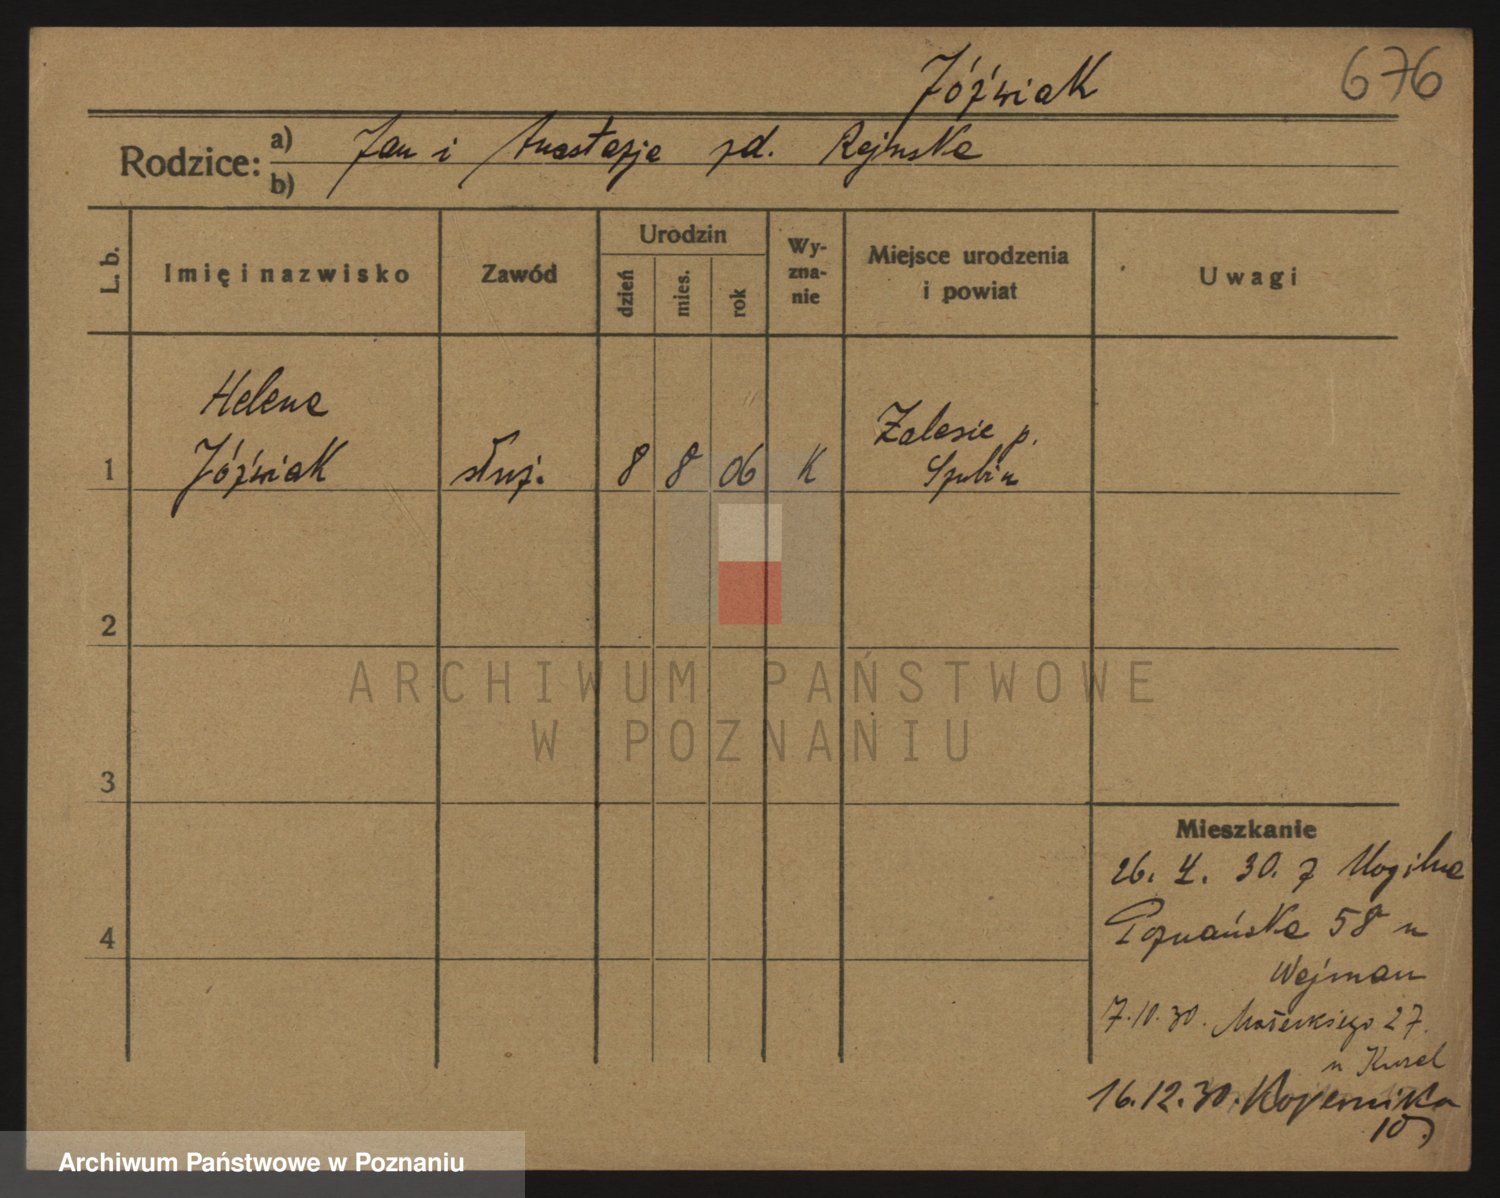 Jóźwiak 676
Rodzice: a) Jan i Anastazja zd. Rejnska
b)
L. b. Imię i nazwisko Zawód Urodzin dzień mies. rok Wy-zna-nie Miejsce urodzenia i powiat Uwagi
Helena
1 Jóźwiak służ. 8 8 06 K Zalesie p.
Szubin
2
ARCHIWUM PAŃSTWOWE
W POZNANIU
3
Mieszkanie
26. 4. 30. z Mogilna
4 Poznańska 58 u
Wejman
7.10.30. Małeckiego 27.
u
16.12.30. Kopernika
10
Archiwum Państwowe w Poznaniu